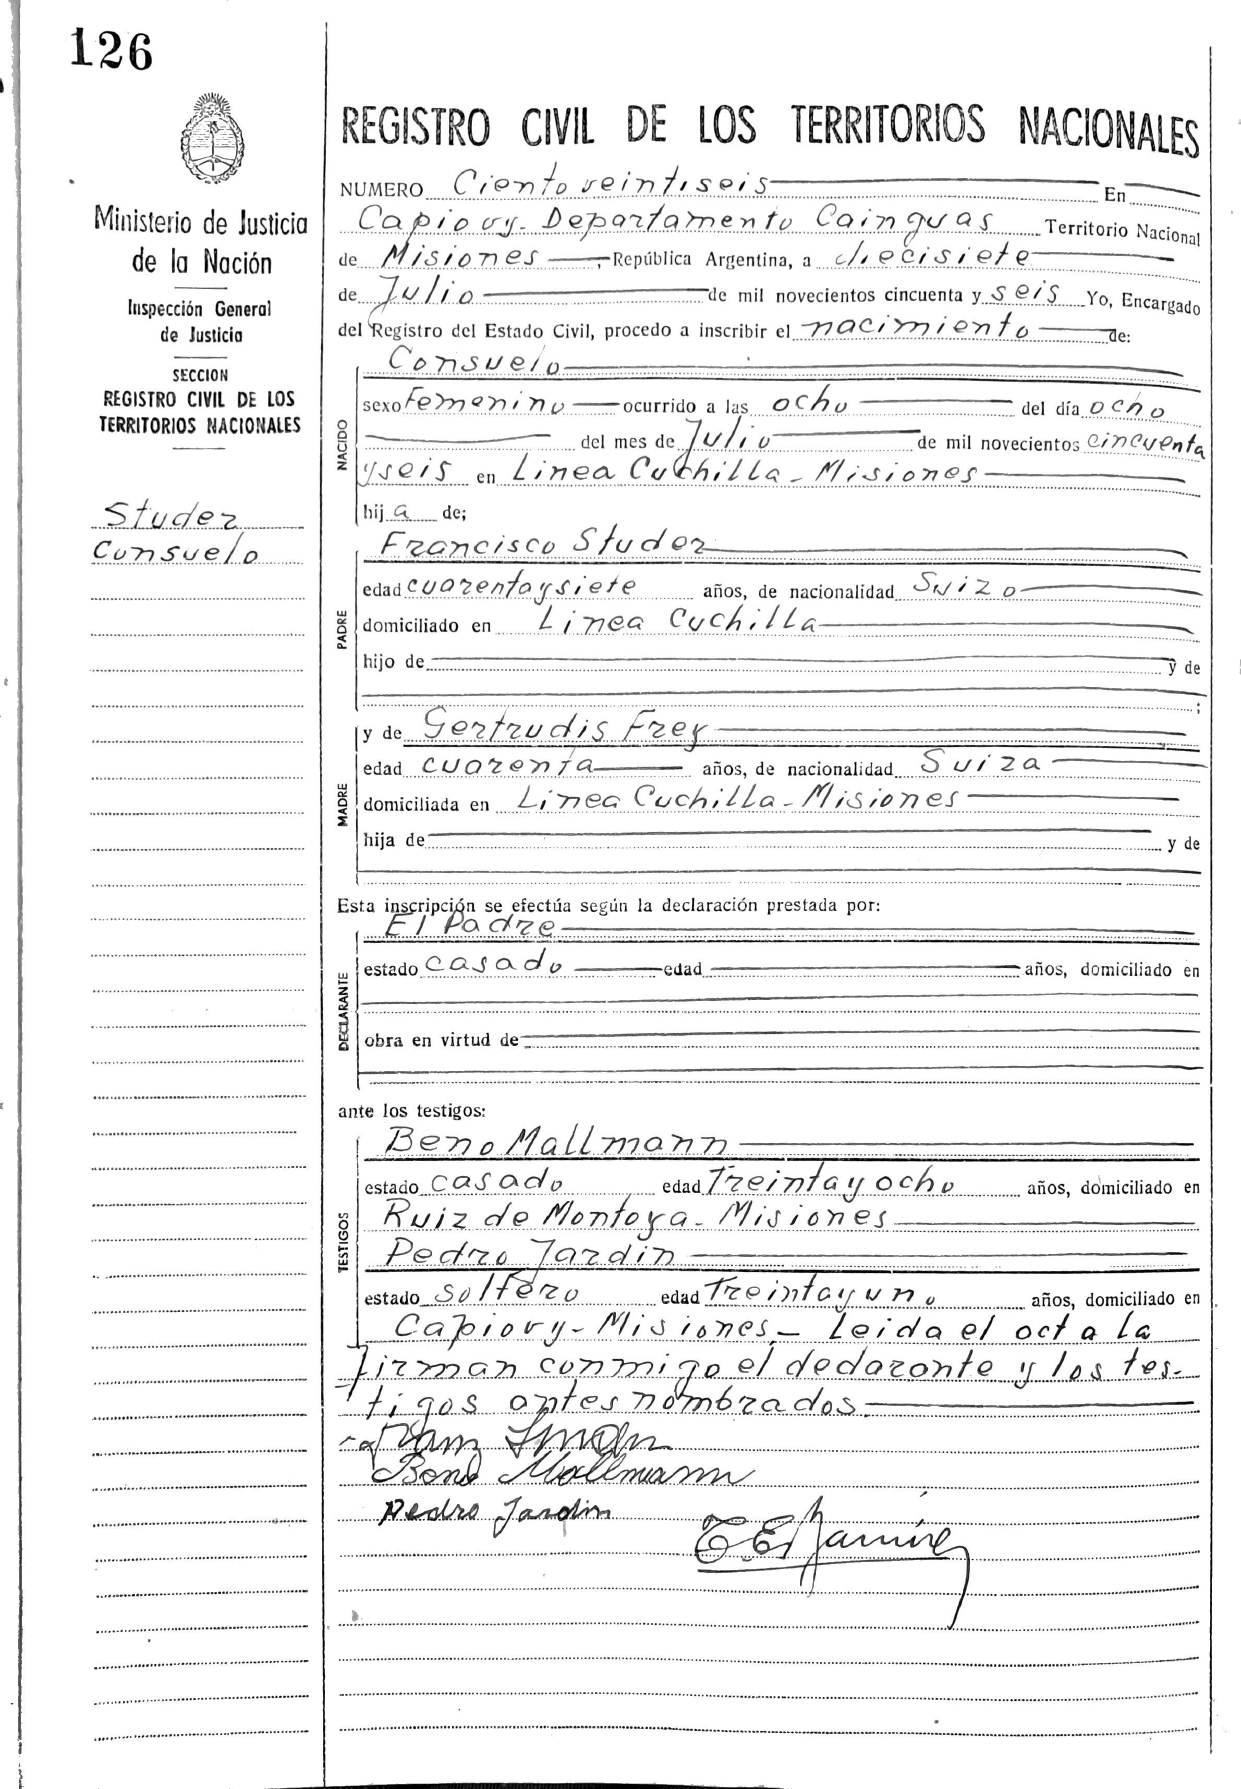 126
Ministerio de Justicia
de la Nación
Inspección General
de Justicia
SECCION
REGISTRO CIVIL DE LOS
TERRITORIOS NACIONALES
Studer
Consuelo
REGISTRO CIVIL DE LOS TERRITORIOS NACIONALES
NUMERO Ciento veintiseis En
Capiovy - Departamento Cainguas Territorio Nacional
de Misiones , República Argentina, a diecisiete
de Julio de mil novecientos cincuenta y seis Yo, Encargado
del Registro del Estado Civil, procedo a inscribir el nacimiento de:
Consuelo
sexo Femenino ocurrido a las ocho del día ocho
del mes de Julio de mil novecientos cincuenta
y seis en Linea Cuchilla - Misiones
hij a de;
NACIDO
Francisco Studer
edad cuarenta y siete años, de nacionalidad Suizo
domiciliado en Linea Cuchilla
hijo de y de
;
PADRE
y de Gertrudis Frey
edad cuarenta años, de nacionalidad Suiza
domiciliada en Linea Cuchilla - Misiones
hija de y de
MADRE
Esta inscripción se efectúa según la declaración prestada por:
El Padre
estado casado edad años, domiciliado en
obra en virtud de
DECLARANTE
ante los testigos:
Beno Mallmann
estado casado edad Treinta y ocho años, domiciliado en
Ruiz de Montoya - Misiones
Pedro Jardin
estado soltero edad Treinta y uno años, domiciliado en
Capiovy - Misiones. - Leida el acta la
TESTIGOS
firman conmigo el declarante y los tes-
tigos antes nombrados.
Beno Mallmann
Pedro Jardin